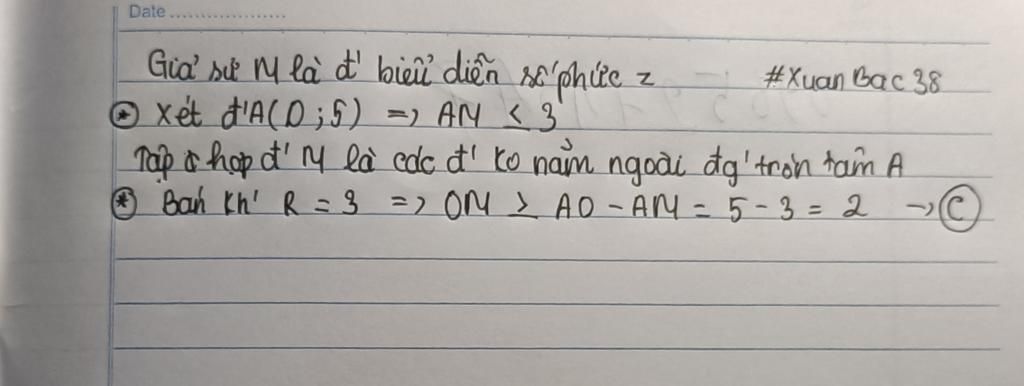 Date ....................
Giả sử M là đ' biểu diễn số phức z #XuanBac38
⊛ Xét đ'A(0;5) => AM ≤ 3
Tập hợp đ' M là các đ' ko nằm ngoài đg' tròn tâm A
⊛ Bán kh' R = 3 => OM ≥ AO - AM = 5 - 3 = 2 → Ⓒ